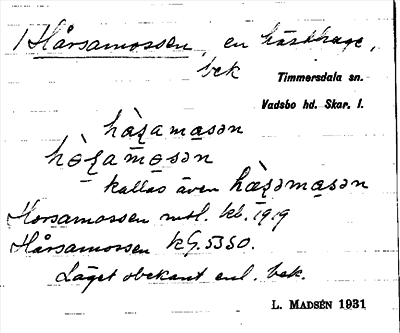 1 Hårsamossen, en hästhage,
bek
Timmersdala sn.
Vadsbo hd. Skar. l.
kallas även
Horsamossen mtl. kb. 1919
Hårsamossen kG. 5350.
Läget obekant enl. bek.
L. MADSÉN 1931